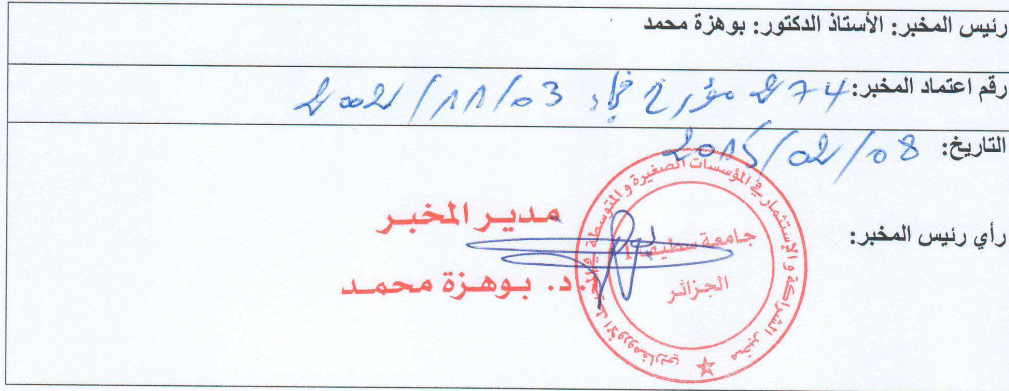 رئيس المخبر: الأستاذ الدكتور: بوهزة محمد
رقم اعتماد المخبر: 274 مؤرخ في: 2002/11/03
التاريخ: 2015/02/08
رأي رئيس المخبر:
مدير المخبر
أ.د. بوهزة محمد
مخبر الشراكة و الإستثمار في المؤسسات الصغيرة و المتوسطة في الأورومغاربي
جامعة سطيف 1
الجزائر